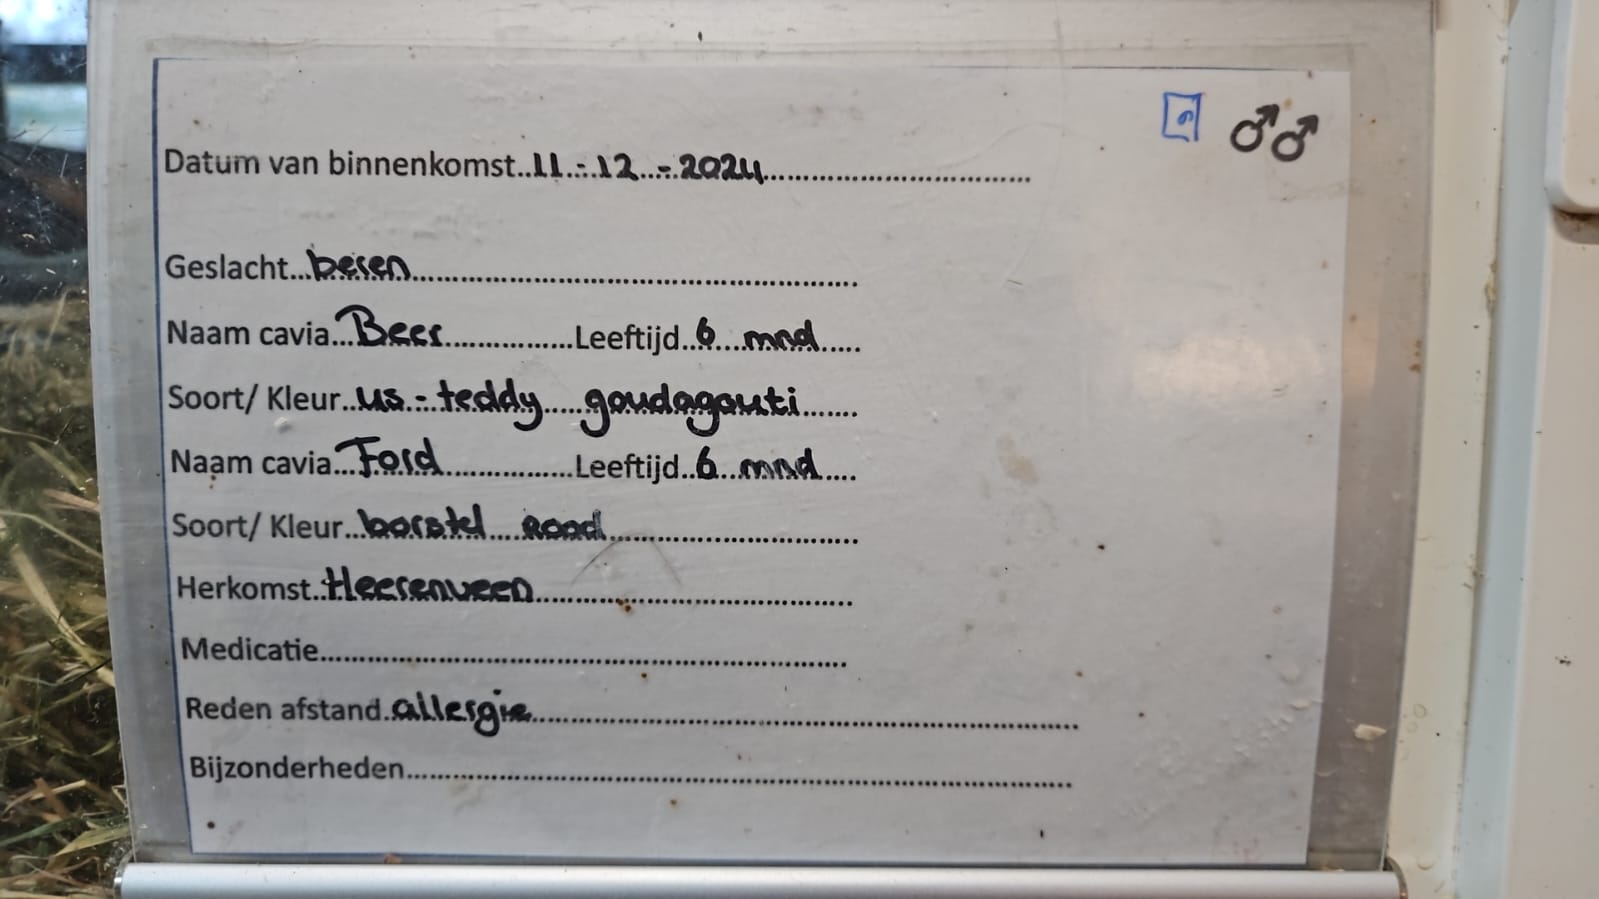 6 ♂♂
Datum van binnenkomst..11-12-2024
Geslacht...beren
Naam cavia...Beer Leeftijd...6 mnd
Soort/ Kleur..us-teddy goudagouti
Naam cavia...Ford Leeftijd..6 mnd
Soort/ Kleur...borstel rood
Herkomst..Heerenveen
Medicatie
Reden afstand.allergie
Bijzonderheden